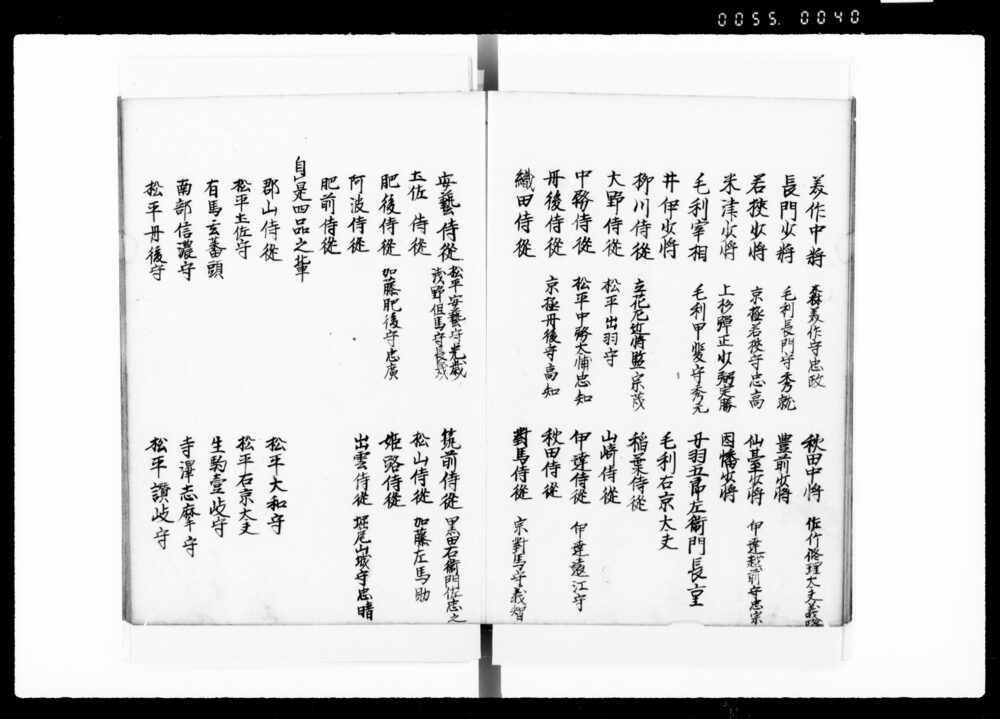 0055. 0040
美作中將 森美作守忠政 秋田中将 佐竹修理大夫義
長門少將 毛利長門守秀就 豊前少將
若狭少將 京極若狭守忠高 仙臺少將 伊達越前守忠宗
米津少將 上杉彈正少弼定勝 因幡少將
毛利宰相 毛利甲斐守秀元 丹羽五郎左衛門長重
井伊少將 毛利右京大夫
柳川侍從 立花左近将監宗茂 稲葉侍從
大野侍從 松平出羽守 山崎侍從
中務侍從 松平中務大輔忠知 伊達侍從 伊達遠江守
丹後侍從 京極丹後守高知 秋田侍從
織田侍從 對馬侍從 宗對馬守義智
安藝侍從 松平安藝守光晟 筑前侍從 黒田右衛門佐忠之
土佐侍從 浅野但馬守長晟 松山侍從 加藤左馬助
肥後侍從 加藤肥後守忠廣 姫路侍從
阿波侍從 出雲侍從 堀尾山城守忠晴
肥前侍從
自是四品之輩
郡山侍從 松平大和守
松平土佐守 松平右京大夫
有馬玄蕃頭 生駒壹岐守
南部信濃守 寺澤志摩守
松平丹後守 松平讃岐守